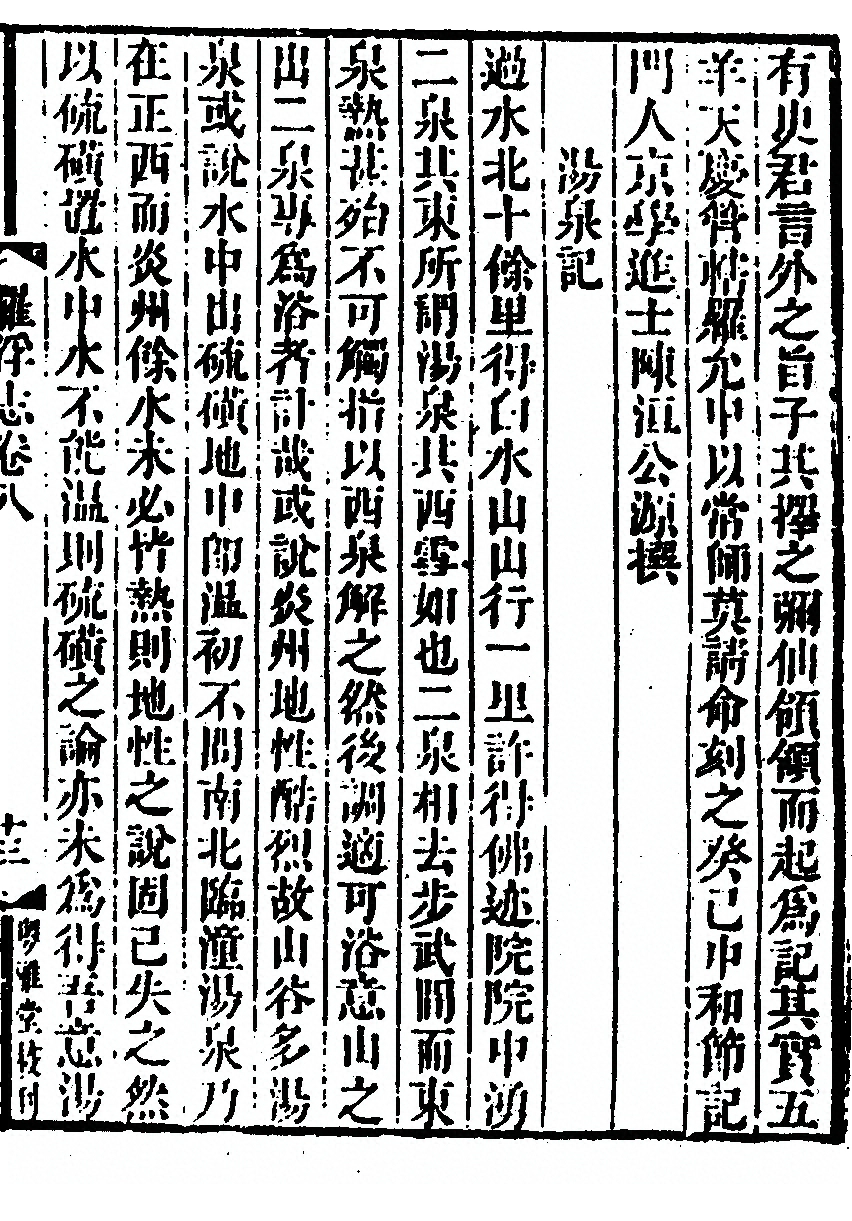 有史君言外之旨子其擇之彌仙頷頷而起爲記其實五
羊大慶晳精羅允中以常師莫請命刻之癸已中和節記
門人京學進士陳洹公源撰
湯泉記
過水北十餘里得白水山山行一里許得佛迹院院中湧
二泉其東所謂湯泉其西雪如也二泉相去步武間而東
泉熱甚殆不可觸指以西泉解之然後調適可浴意山之
出二泉專爲浴者計哉或說炎州地性酷烈故山谷多湯
泉或說水中出硫磺地中卽温初不問南北臨潼湯泉乃
在正西而炎州餘水未必皆熱則地性之說固已失之然
以硫磺置水中水不能温則硫磺之論亦未爲得吾意湯
羅浮志卷八
十三
粤雅堂校刊